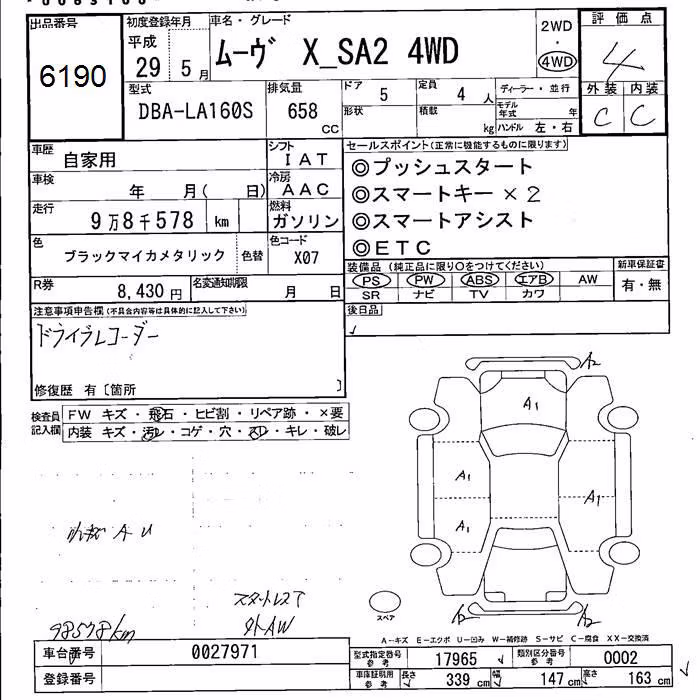 出品番号
6190
初度登録年月
平成
29 5月
車名・グレード
ムーヴ X_SA2 4WD
2WD
・
4WD
評価点
4
外装 内装
C C
型式
DBA-LA160S
排気量
658
CC
ドア 5
定員 4人
形状
積載
kg
ディーラー・並行
モデル年式 年
ハンドル 左・右
車歴 自家用
シフト
IAT
車検 年 月( 日)
冷房
AAC
走行 9万8千578 km
燃料
ガソリン
色 ブラックマイカメタリック 色替
色コード
X07
R券 8,430円
名変通知期限 月 日
セールスポイント(正常に機能するものに限ります)
◎プッシュスタート
◎スマートキー×2
◎スマートアシスト
◎ETC
装備品(純正品に限り○をつけてください)
PS PW ABS エアB AW
SR ナビ TV カワ
新車保証書
有・無
後日品
注意事項申告欄(不具合内容等は具体的に記入して下さい)
ドライブレコーダー
修復歴 有〔箇所 〕
検査員記入欄
FW キズ・飛石・ヒビ割・リペア跡・×要
内装 キズ・汚レ・コゲ・穴・スレ・キレ・破レ
A2
A1
A1
A1
A1
A2
A2
スペア
スタートレスT
外AW
98578km
A-キズ E-エクボ U-凹み W-補修跡 S-サビ C-腐食 XX-交換済
車台番号 0027971
登録番号
型式指定番号参考 17965
類別区分番号参考 0002
車庫証明用参考 長さ 339 cm 幅 147 cm 高さ 163 cm